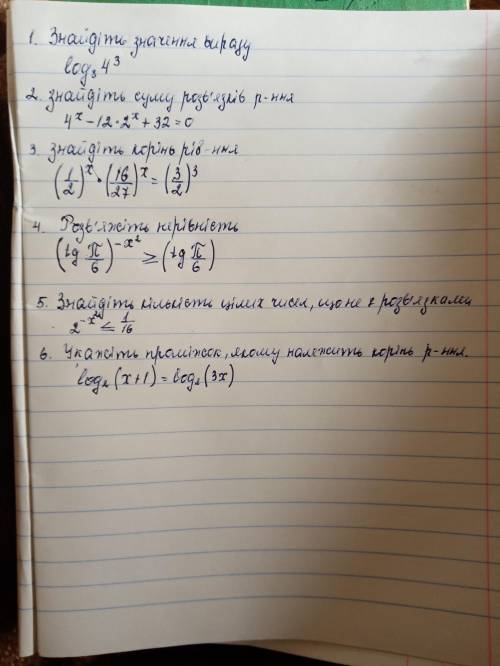 1. Знайдіть значення виразу
log₃ 4³
2. Знайдіть суму розв'язків р-ння
4ˣ - 12 · 2ˣ + 32 = 0
3. Знайдіть корінь рів-ння
(1/2)ˣ · (16/27)ˣ = (3/2)³
4. Розв'яжіть нерівність
(tg π/6)^(-x²) ≥ (tg π/6)
5. Знайдіть кількість цілих чисел, що не є розв'язками
2^(-x²) ≤ 1/16
6. Укажіть проміжок, якому належить корінь р-ння.
(x+1) = (3x)